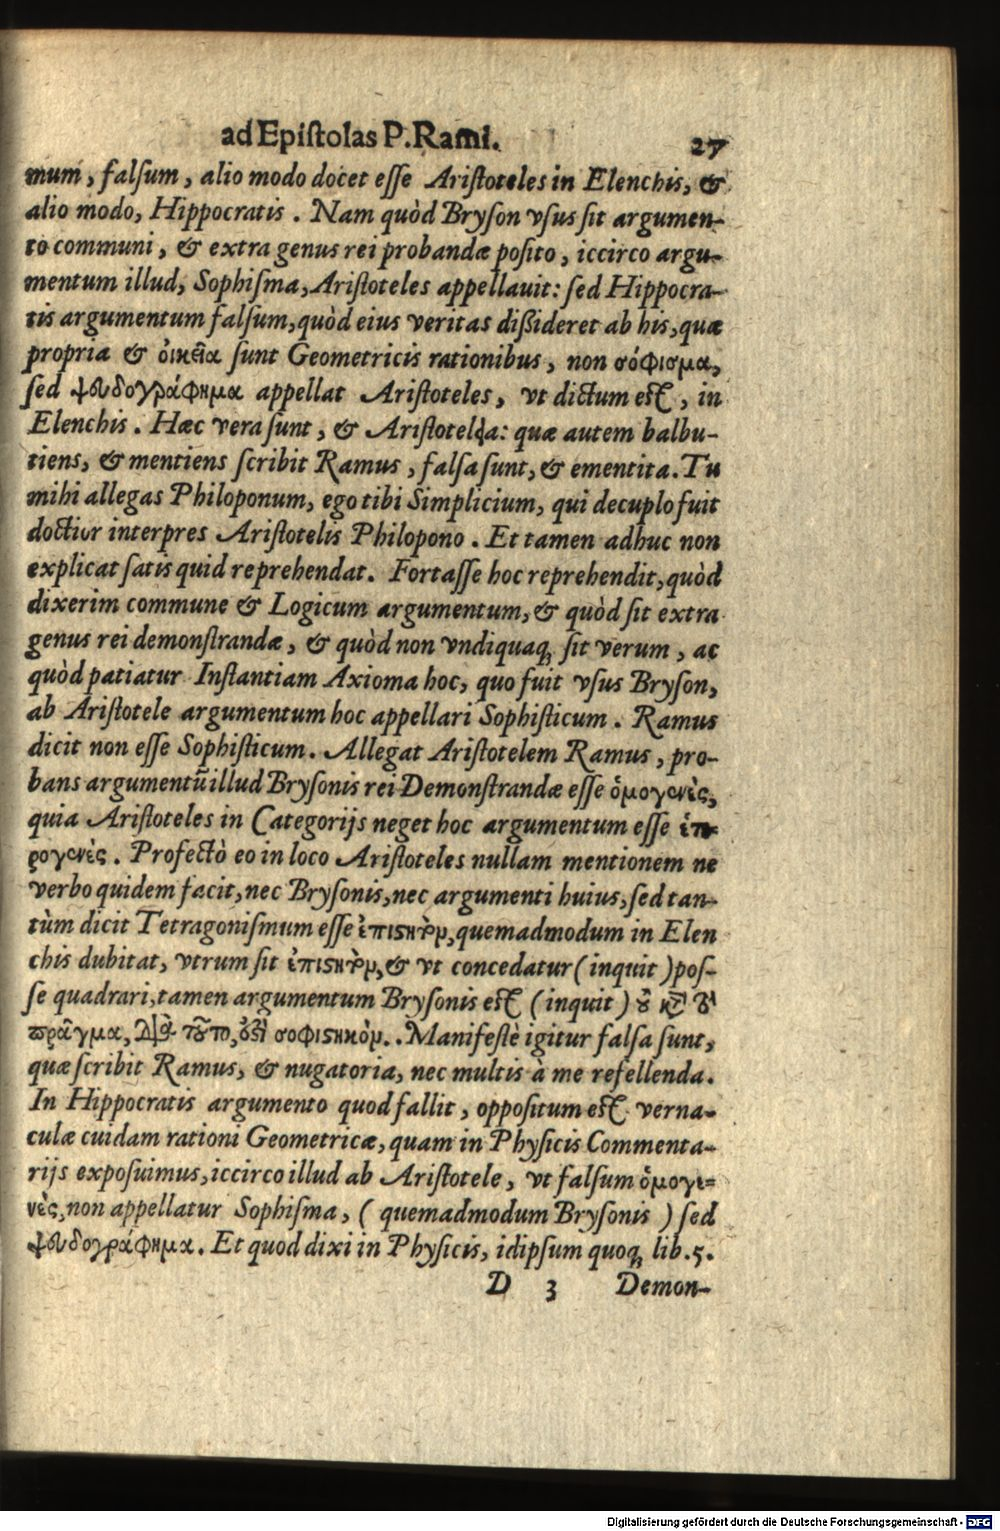 ad Epiſtolas P. Rami. 27
mum, falſum, alio modo docet eſſe Ariſtoteles in Elenchis, &
alio modo, Hippocratis. Nam quòd Bryſon vſus ſit argumen-
to communi, & extra genus rei probandæ poſito, iccirco argu-
mentum illud, Sophiſma, Ariſtoteles appellauit: ſed Hippocra-
tis argumentum falſum, quòd eius veritas dißideret ab his, quæ
propria & οἰκεῖα ſunt Geometricis rationibus, non σόφισμα,
ſed ψευδογράφημα appellat Ariſtoteles, vt dictum eſt, in
Elenchis. Hæc vera ſunt, & Ariſtotelia: quæ autem balbu-
tiens, & mentiens ſcribit Ramus, falſa ſunt, & ementita. Tu
mihi allegas Philoponum, ego tibi Simplicium, qui decuplo fuit
doctior interpres Ariſtotelis Philopono. Et tamen adhuc non
explicat ſatis quid reprehendat. Fortaſſe hoc reprehendit, quòd
dixerim commune & Logicum argumentum, & quòd ſit extra
genus rei demonſtrandæ, & quòd non vndiquaq; ſit verum, ac
quòd patiatur Inſtantiam Axioma hoc, quo fuit vſus Bryſon,
ab Ariſtotele argumentum hoc appellari Sophiſticum. Ramus
dicit non eſſe Sophiſticum. Allegat Ariſtotelem Ramus, pro-
bans argumentū illud Bryſonis rei Demonſtrandæ eſſe ὁμογενὲς,
quia Ariſtoteles in Categorijs neget hoc argumentum eſſe ἑτε-
ρογενὲς. Profectò eo in loco Ariſtoteles nullam mentionem ne
verbo quidem facit, nec Bryſonis, nec argumenti huius, ſed tan-
tùm dicit Tetragoniſmum eſſe ἐπιστητὸν, quemadmodum in Elen
chis dubitat, vtrum ſit ἐπιστητὸν, & vt concedatur (inquit) poſ-
ſe quadrari, tamen argumentum Bryſonis eſt (inquit) οὐ κατὰ τὸ
πρᾶγμα, διὸ τοῦτο, ὅτι σοφιστικὸν.. Manifeſtè igitur falſa ſunt,
quæ ſcribit Ramus, & nugatoria, nec multis à me refellenda.
In Hippocratis argumento quod fallit, oppoſitum eſt verna-
culæ cuidam rationi Geometricæ, quam in Phyſicis Commenta-
rijs expoſuimus, iccirco illud ab Ariſtotele, vt falſum ὁμογε-
νὲς, non appellatur Sophiſma, (quemadmodum Bryſonis) ſed
ψευδογράφημα. Et quod dixi in Phyſicis, idipſum quoq; lib. 5.
D 3 Demon-
Digitalisierung gefördert durch die Deutsche Forschungsgemeinschaft - DFG